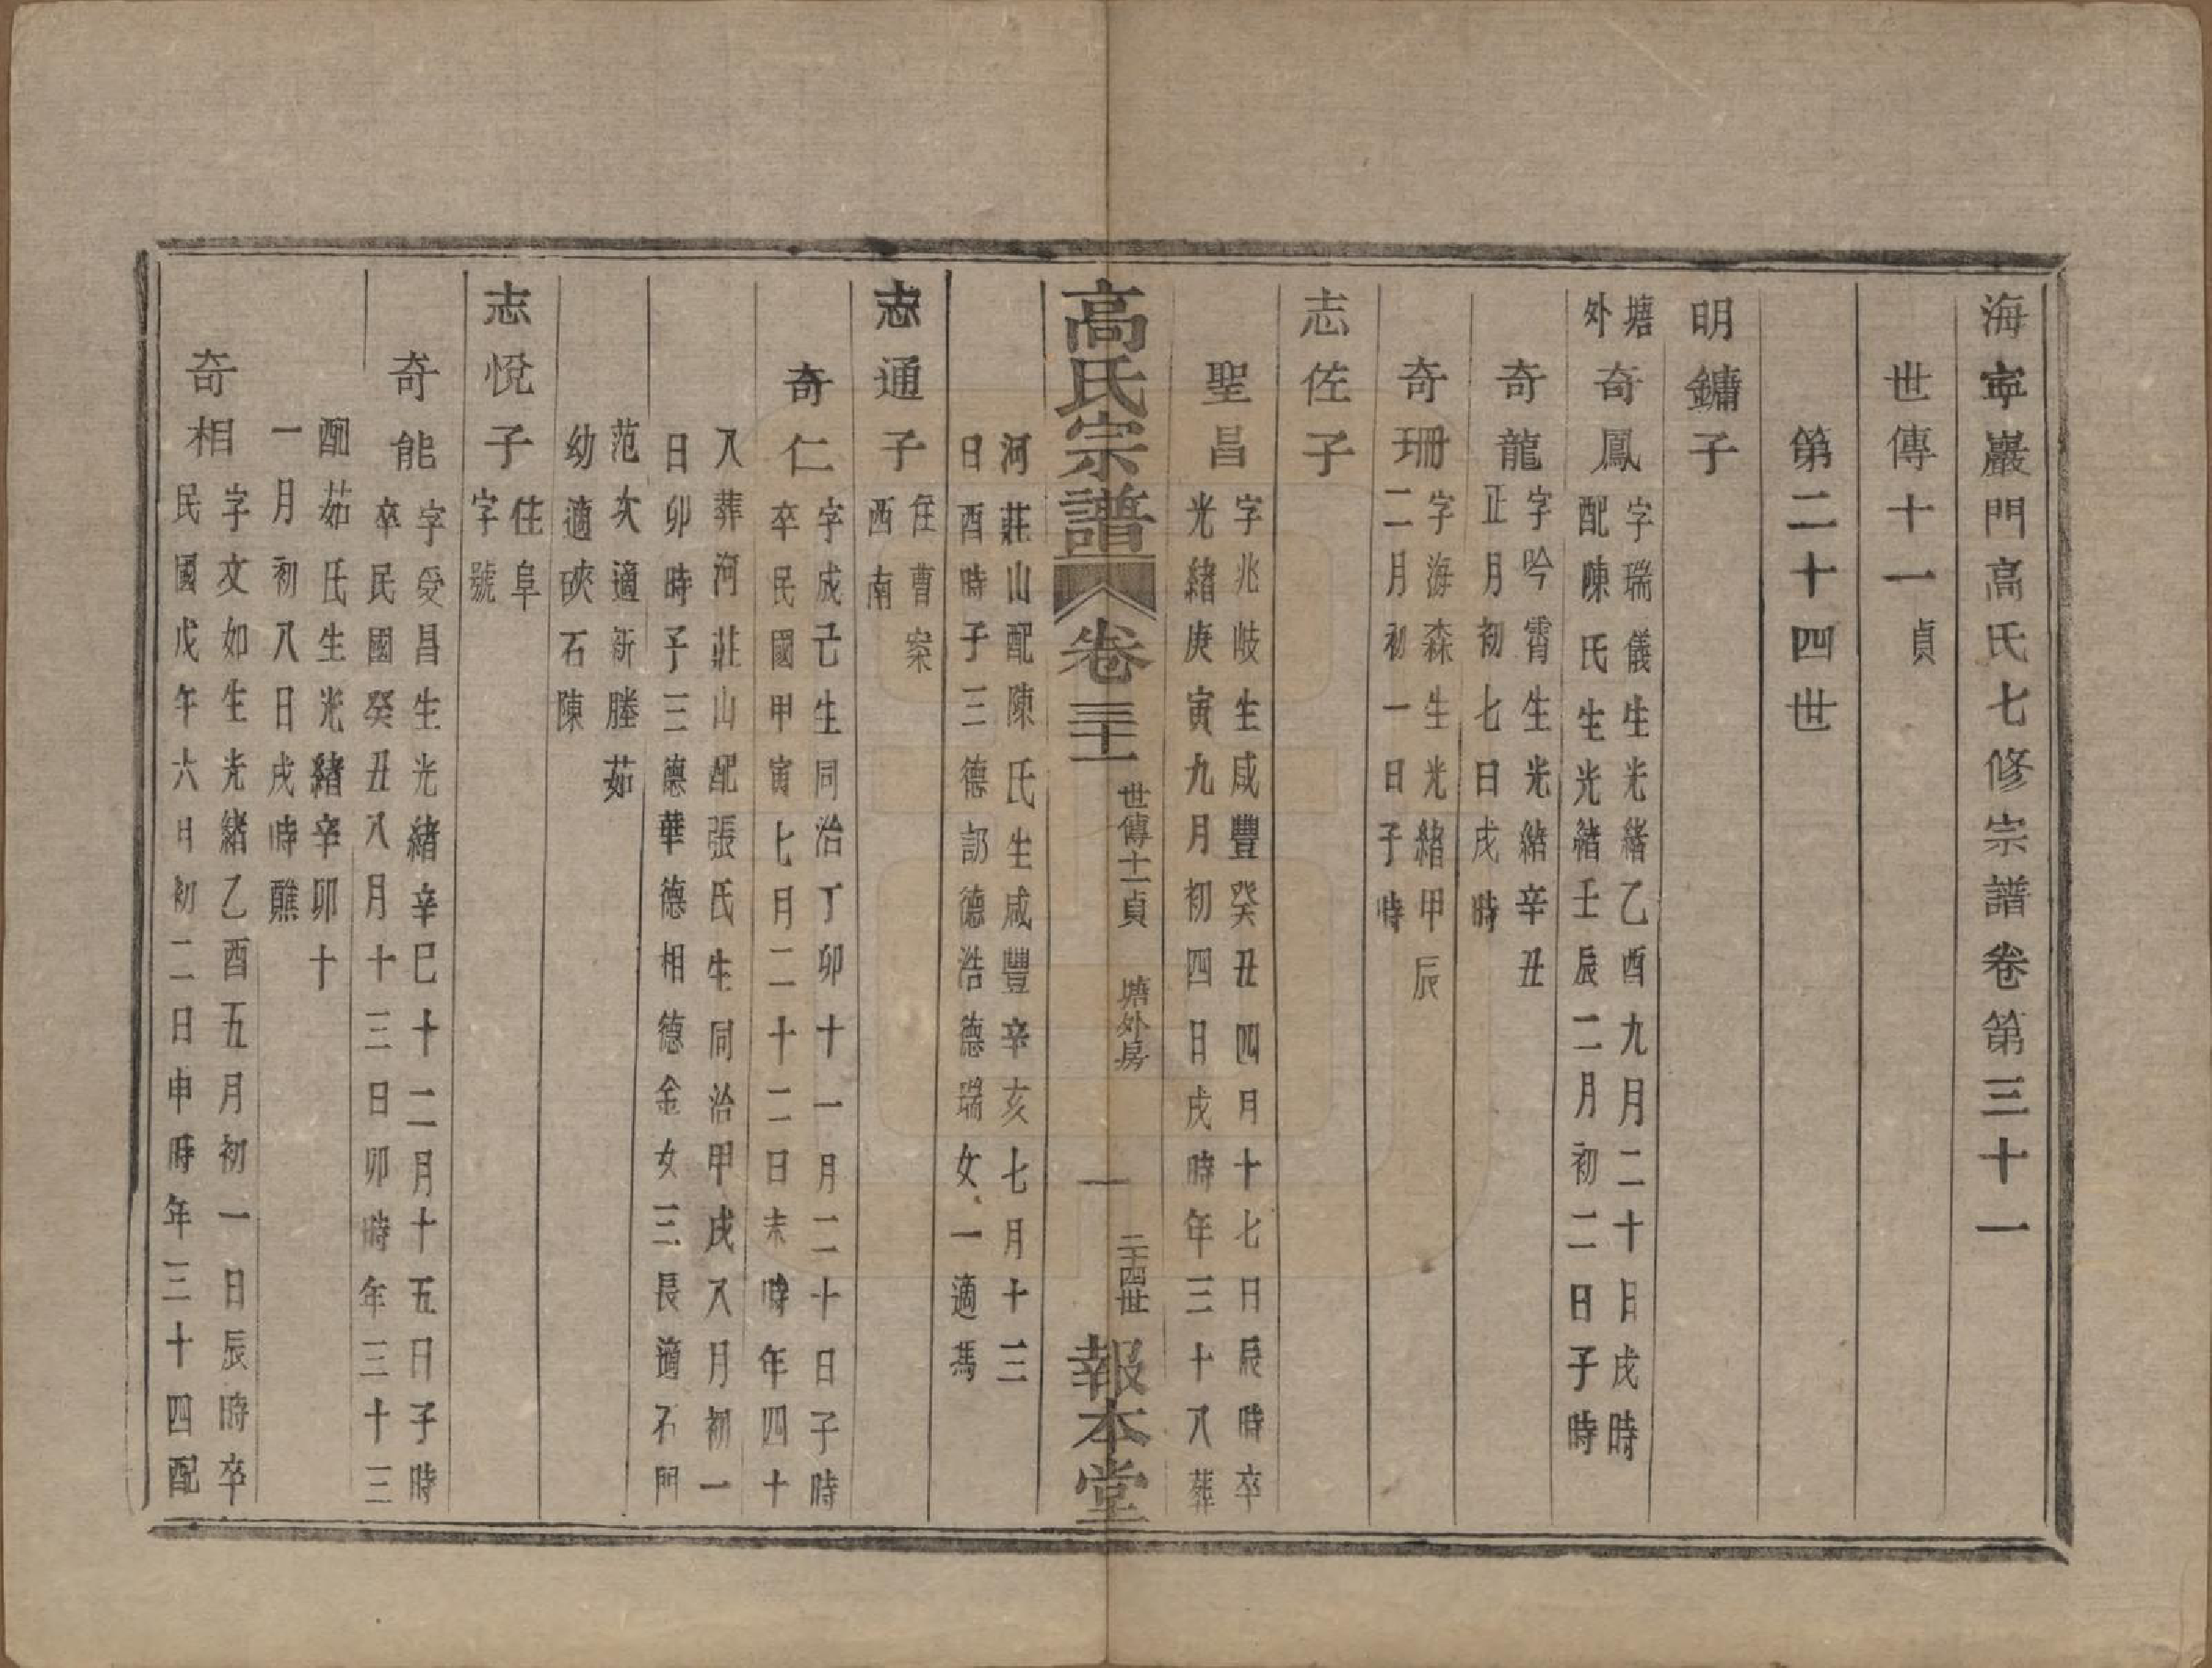 海寧巖門高氏七修宗譜卷第三十一
世傳十一 貞
第二十四世
明鏞子
塘
外
奇鳳
字瑞儀生光緒乙酉九月二十日戌時
配陳氏生光緒壬辰二月初二日子時
奇龍
字吟霄生光緒辛丑
正月初七日戌時
奇珊
字海森生光緒甲辰
二月初一日子時
志佐子
聖昌
字兆岐生咸豐癸丑四月十七日辰時卒
光緒庚寅九月初四日戌時年三十八葬
高氏宗譜 卷三十一 世傳十一貞 塘外房 一 二十四世 報本堂
河莊山配陳氏生咸豐辛亥七月十三
日酉時子三德韶德浩德瑞女一適馮
志通子
住曹家
西南
奇仁
字成己生同治丁卯十一月二十日子時
卒民國甲寅七月二十二日未時年四十
八葬河莊山配張氏生同治甲戌八月初一
日卯時子三德華德相德金女三長適石門
范次適新塍茹
幼適硤石陳
志悅子
住阜
字號
奇能
字受昌生光緒辛巳十二月十五日子時
卒民國癸丑八月十三日卯時年三十三
配茹氏生光緒辛卯十
一月初八日戌時醮
奇相
字文如生光緒乙酉五月初一日辰時卒
民國戊午六月初二日申時年三十四配